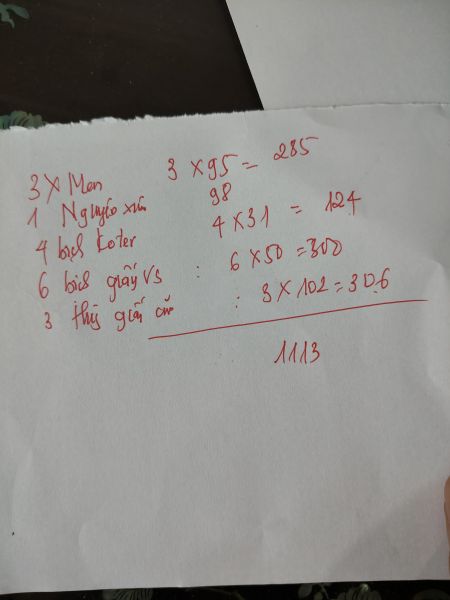 3 X Men 3 x 95 = 285
1 Nguyên xỉu 98
4 bịch Koter 4 x 31 = 124
6 bịch giấy VS : 6 x 50 = 300
3 thùg giấy : 3 x 102 = 306
1113